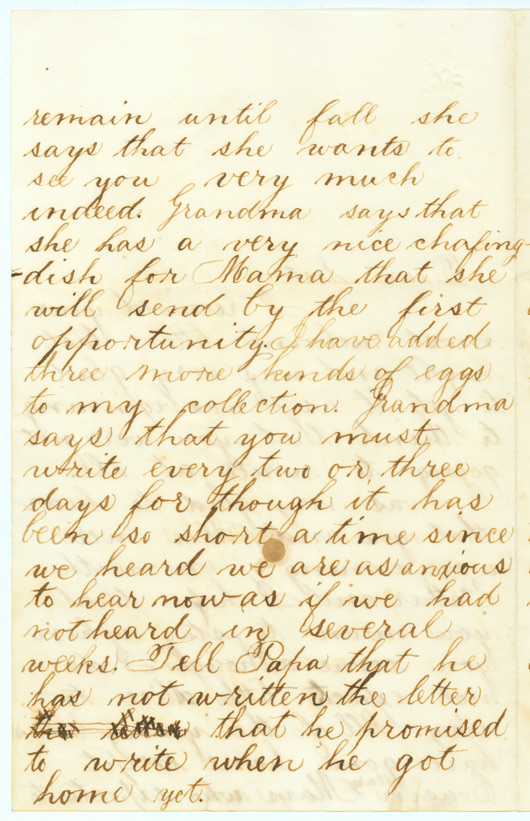 remain until fall she
says that she wants to
see you very much
indeed. Grandma says that
she has a very nice chafing-
-dish for Mama that she
will send by the first
opportunity. I have added
three more kinds of eggs
to my collection. Grandma
says that you must
write every two or three
days for though it has
been so short a time since
we heard we are as anxious
to hear now as if we had
not heard in several
weeks. Tell Papa that he
has not written the letter
that he promised
to write when he got
home yet.